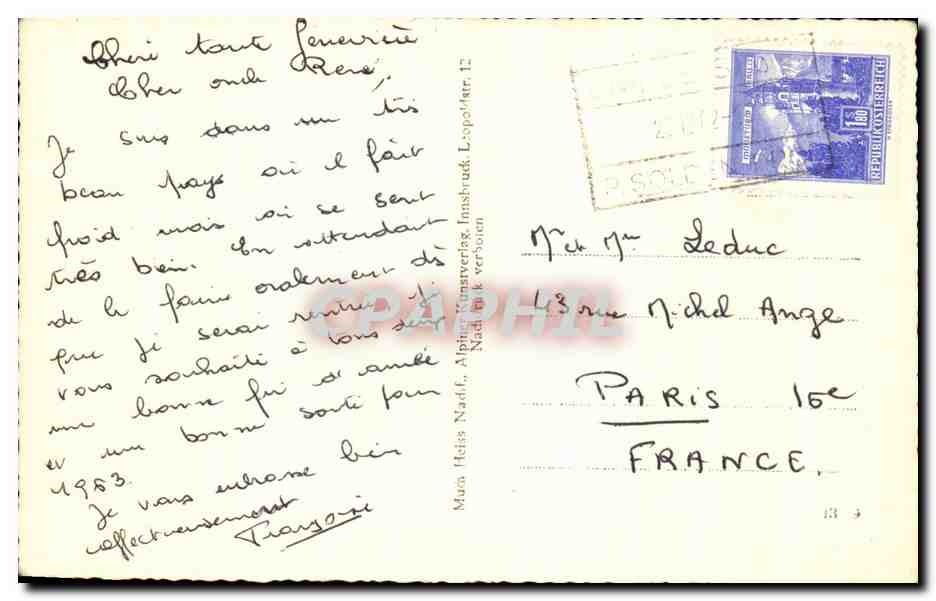 Chère tante Geneviève
Cher oncle René,
Je suis dans un très
beau pays où il fait
froid mais où se sent
très bien. En attendant
de le faire oralement dès
que je serai rentrée je
vous souhaite à tous deux
une bonne fin d'année
et une bonne santé pour
1963.
Je vous embrasse bien
affectueusement
Françoise
Mum Heiss Nachf., Alpiner Kunstverlag, Innsbruck, Leopoldstr. 12
Nachdruck verboten
REPUBLIK ÖSTERREICH
S 1.80
P SÖLDEN
Mr et Mme Leduc
43 rue Michel Ange
PARIS 16e
FRANCE.
CPAPHIL